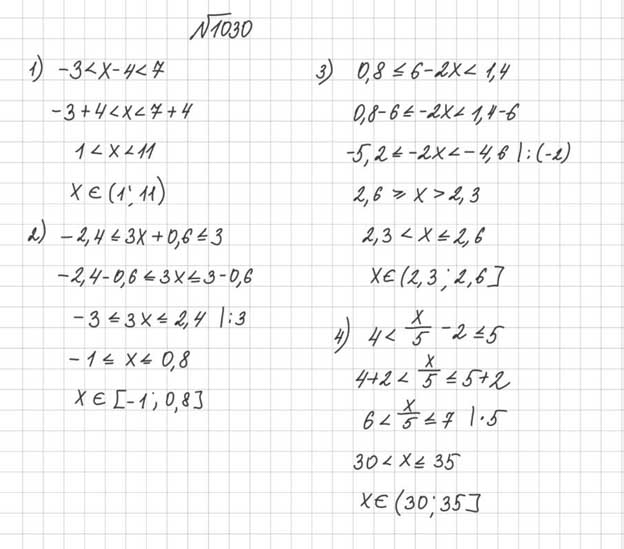 √1030
1) -3 < x - 4 < 7
-3 + 4 < x < 7 + 4
1 < x < 11
x ∈ (1; 11)
2) -2,4 ≤ 3x + 0,6 ≤ 3
-2,4 - 0,6 ≤ 3x ≤ 3 - 0,6
-3 ≤ 3x ≤ 2,4 | : 3
-1 ≤ x ≤ 0,8
x ∈ [-1; 0,8]
3) 0,8 ≤ 6 - 2x < 1,4
0,8 - 6 ≤ -2x < 1,4 - 6
-5,2 ≤ -2x < -4,6 | : (-2)
2,6 ≥ x > 2,3
2,3 < x ≤ 2,6
x ∈ (2,3; 2,6]
4) 4 < x/5 - 2 ≤ 5
4+2 < x/5 ≤ 5+2
6 < x/5 ≤ 7 | · 5
30 < x ≤ 35
x ∈ (30; 35]